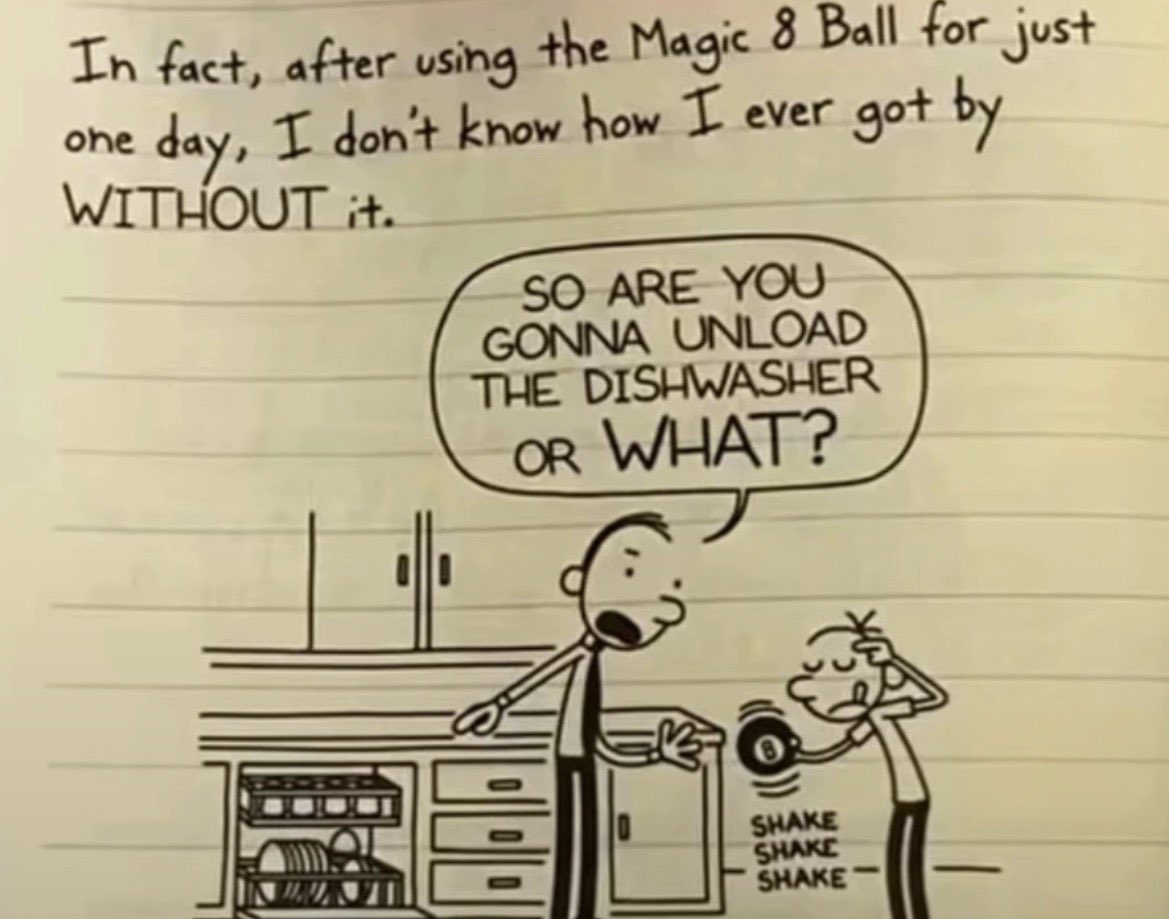 In fact, after using the Magic 8 Ball for just
one day, I don't know how I ever got by
WITHOUT it.
SO ARE YOU
GONNA UNLOAD
THE DISHWASHER
OR WHAT?
8
SHAKE
SHAKE
SHAKE